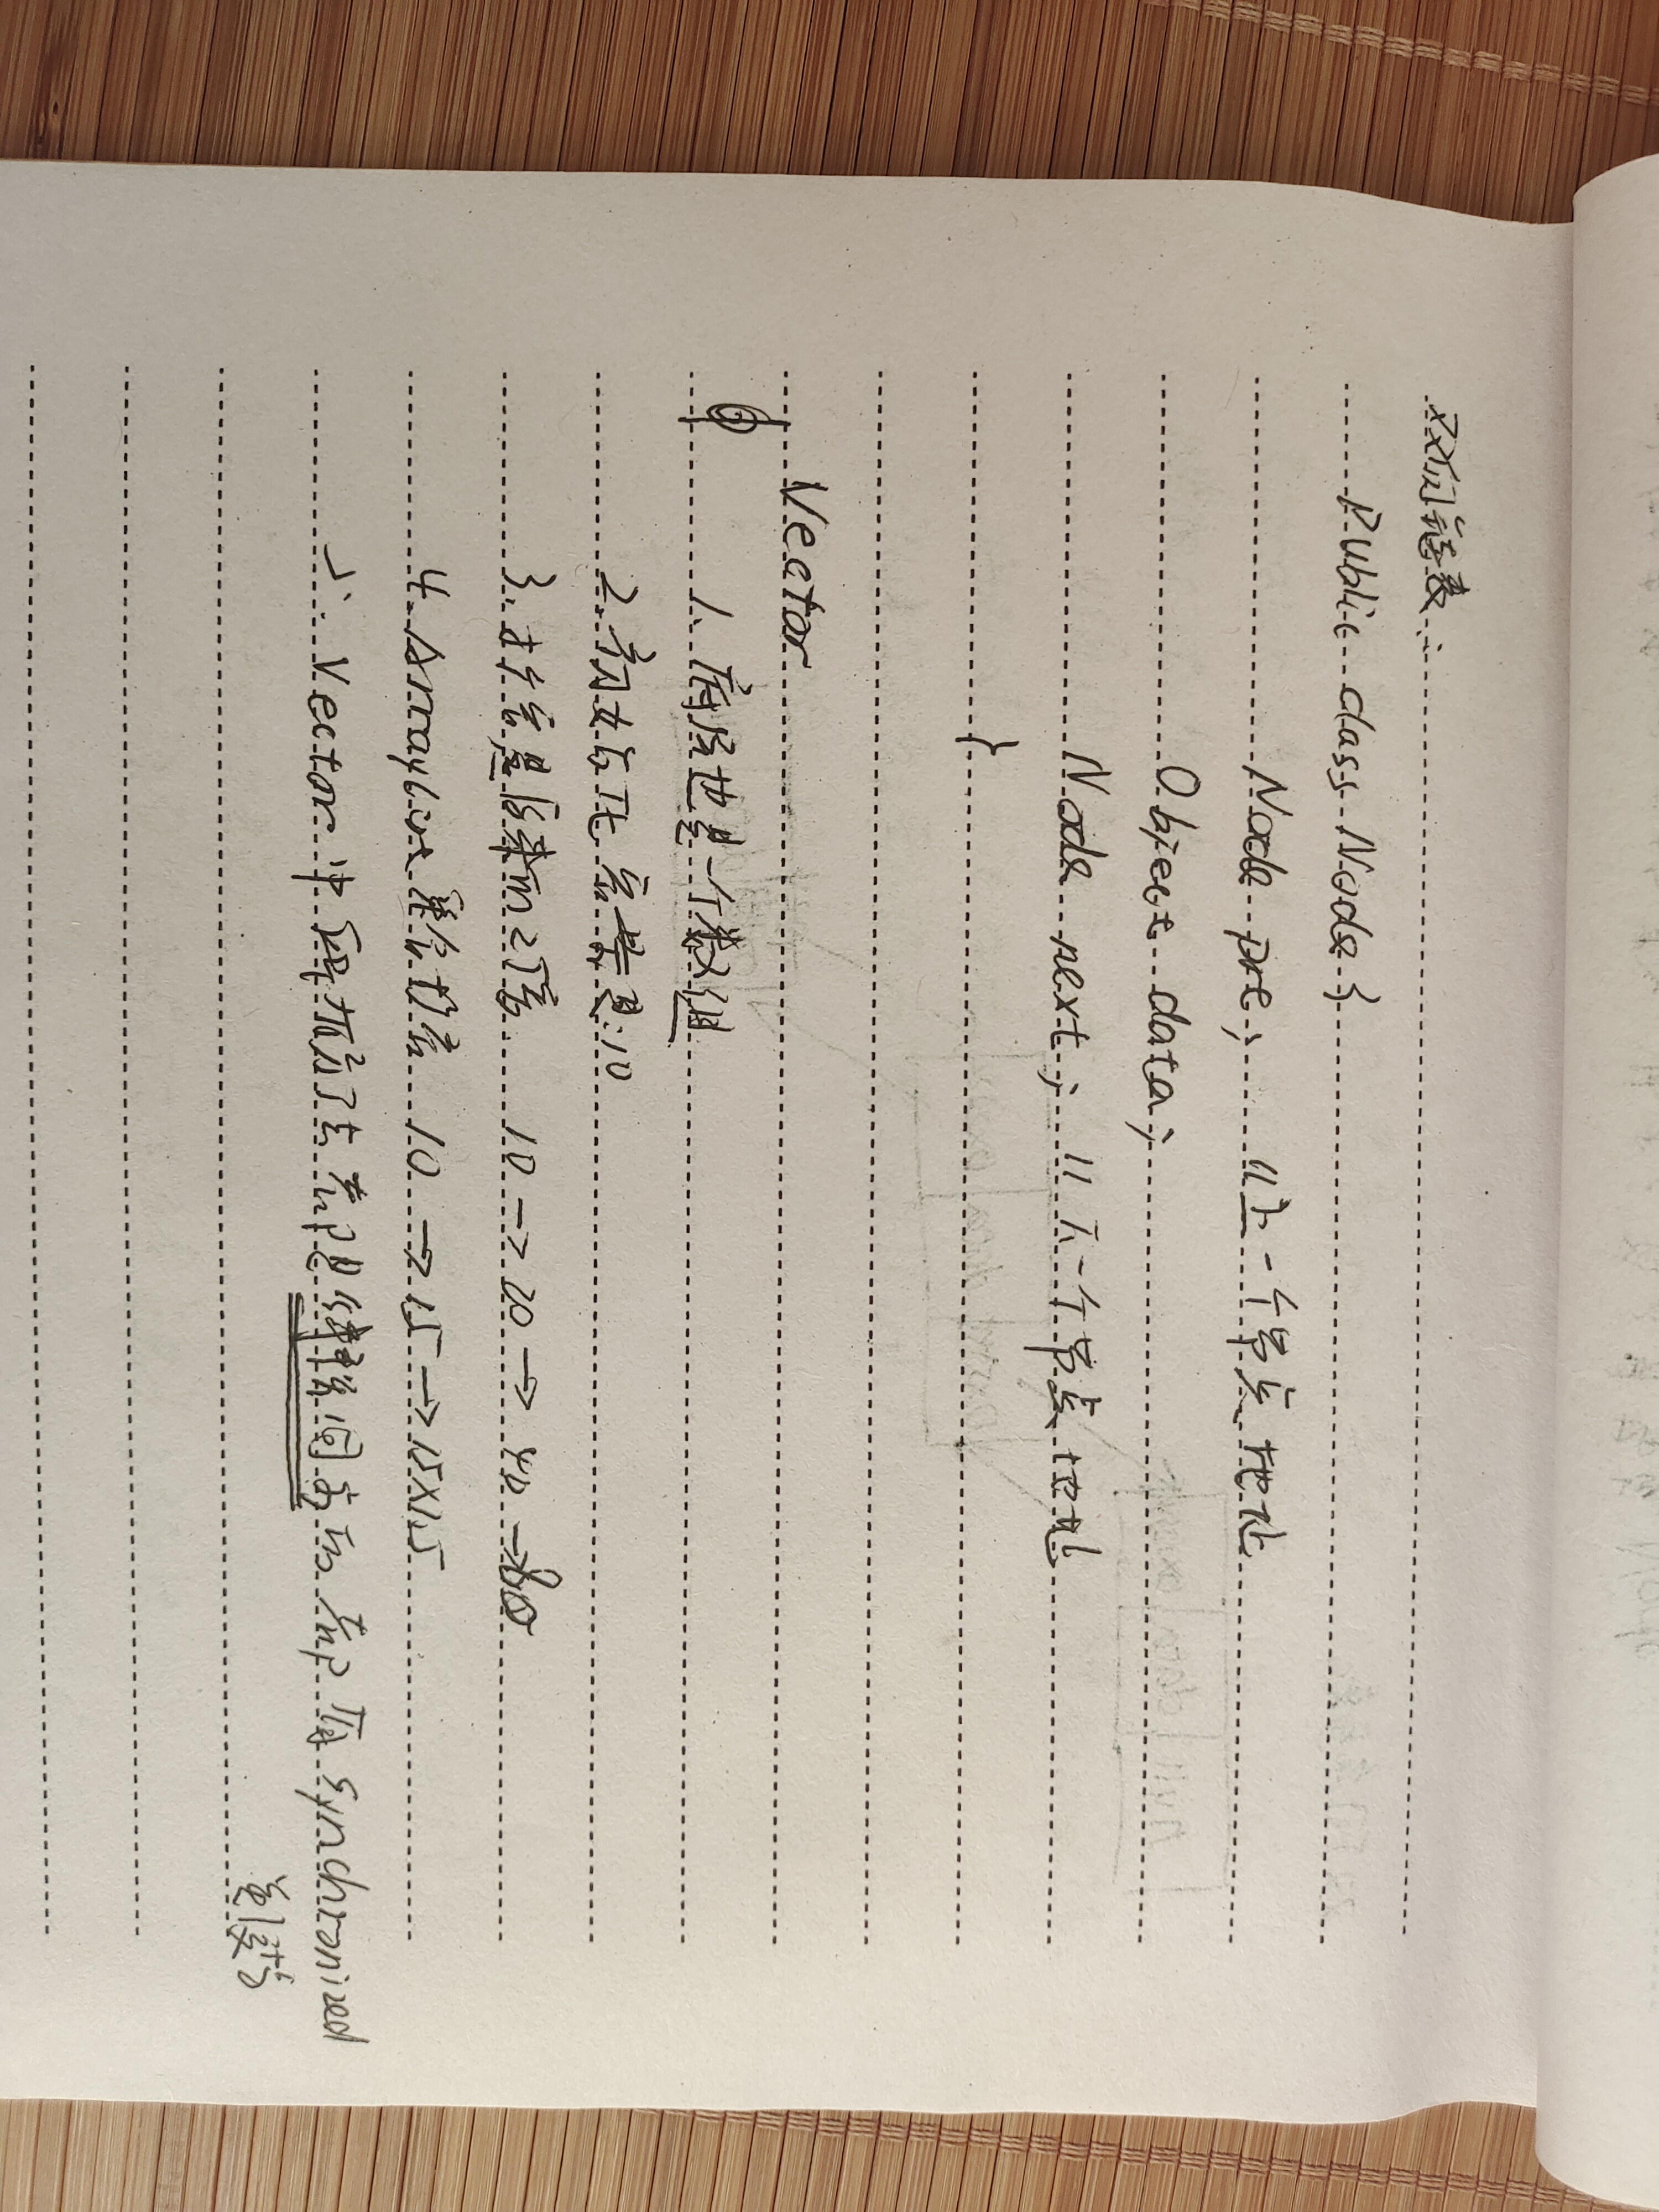 双向链表:
Public class Node {
Node pre; // 上一个节点地址
Object data;
Node next; // 下一个节点地址
}
Vector
1. 底层也是一个数组
2. 初始化容量:10
3. 扩容是原来的2倍 10 → 20 → 40 → 80
4. ArrayList 集合扩容 10 → 15 → 15×1.5
5. Vector 中所有方法都是线程同步的 都有 synchronized
关键字